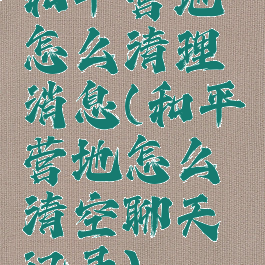 和平营地
怎么清理
消息(和平
营地怎么
清空聊天
记录)